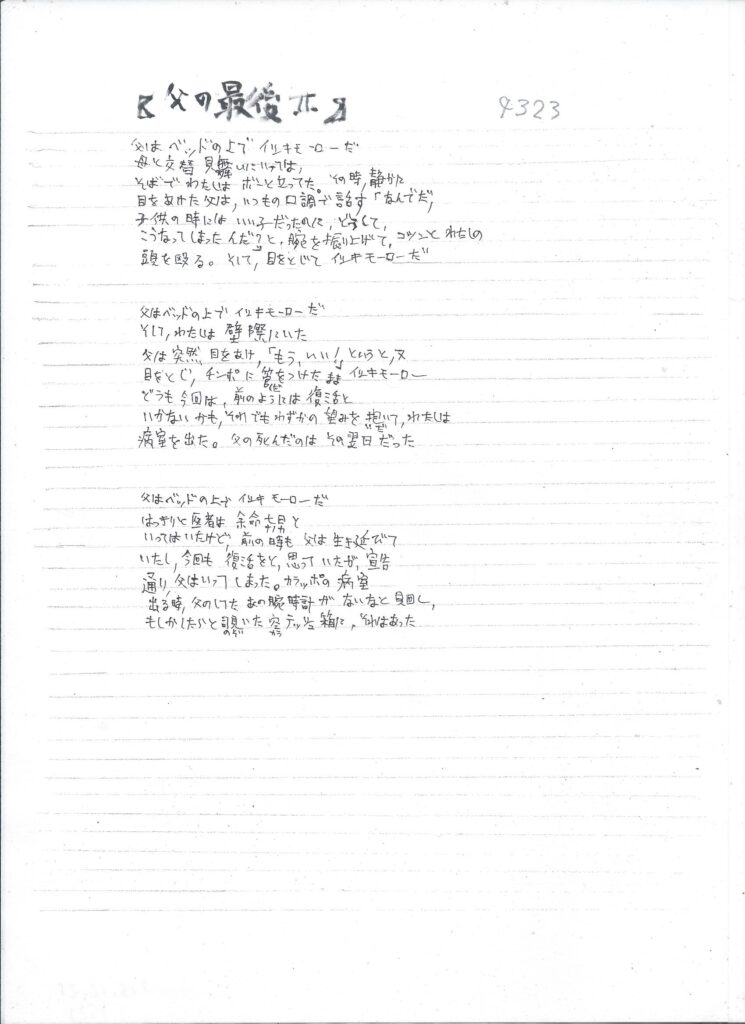 【父の最後ホ】 4323
父はベッドの上で イリキモーローだ
母と交替 見舞いにいっては、
そばで わたしは ボーと立ってた。その時,静かに
目をあけた父は,いつもの口調で話す「なんでだ,
子供の時には いい子だったのに, どうして,
こうなってしまったんだ?」と,腕を振り上げて, コツンと わたしの
頭を殴る。そして, 目をとじて イリキモーローだ
父はベッドの上で イリキモーローだ
そして, わたしは 壁際にいた
父は突然 目をあけ,「もう, いい!」というと, 又
目をとじ, チンポに管をつけたまま イリキモーロー
くだ
どうも今回は, 前のようには 復活と
いかないかも, それでもわずかの望みを抱いて, わたしは
いだ
病室を出た。父の死んだのは その翌日だった
父はベッドの上で イリキモーローだ
はっきりと医者は 余命
いってはいたけど, 前の時も 父は生き延びて
いたし, 今回も 復活をと, 思っていたが, 宣告
通り, 父はいってしまった。カラッポの病室
出る時, 父のしてた あの腕時計が ないなと 見回し,
もしかしたらと 覗いた 空テッシュ箱に, それはあった
のぞ から